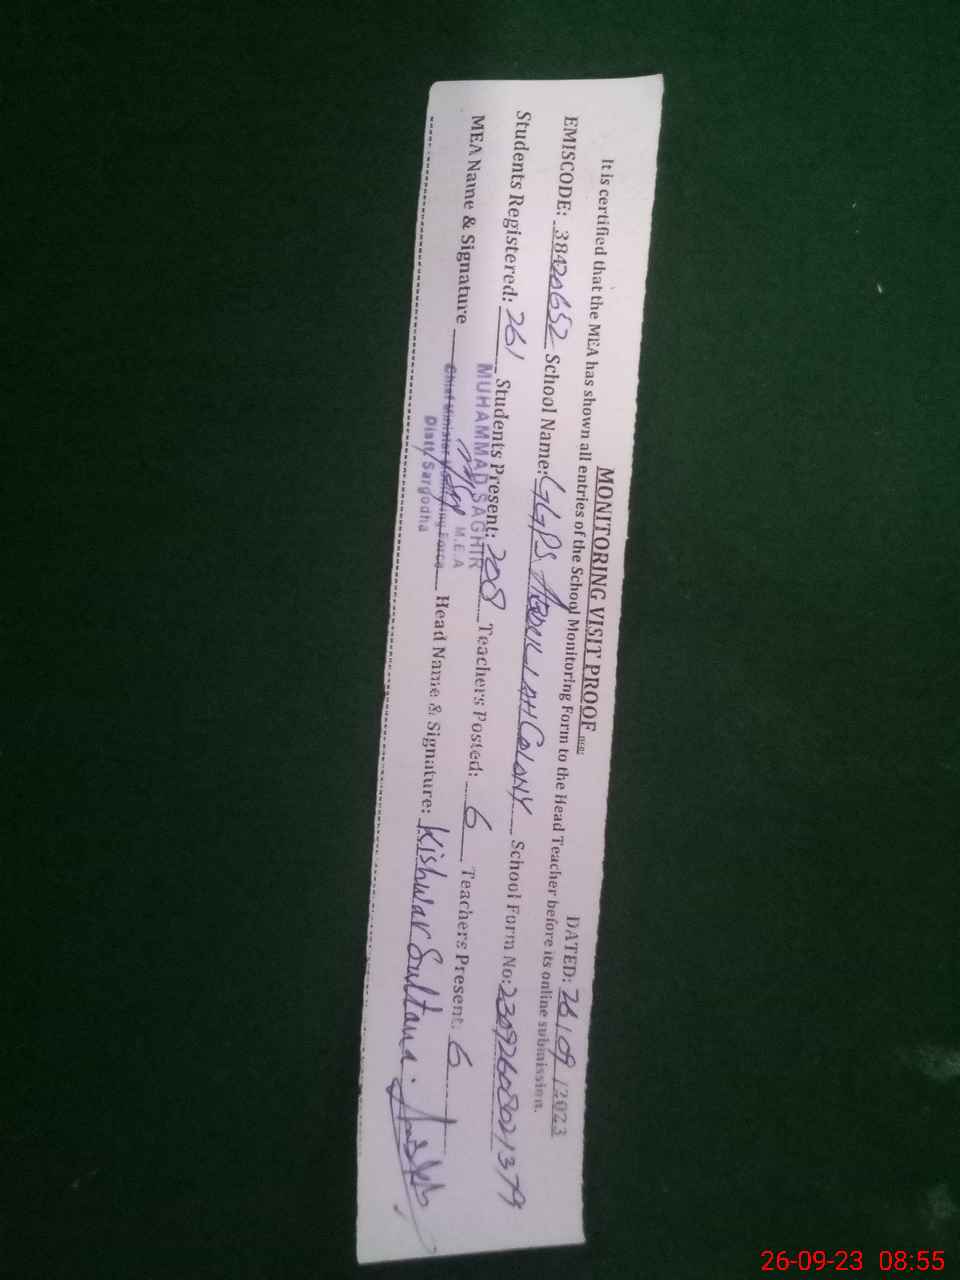 MONITORING VISIT PROOF
DATED: 26/09/2023
It is certified that the MEA has shown all entries of the School Monitoring Form to the Head Teacher before its online submission.
EMISCODE: 38420652 School Name: GGPS ABDULLAH COLONY School Form No: 23092608021379
Students Registered: 261 Students Present: 208 Teachers Posted: 6 Teachers Present: 6
MEA Name & Signature Head Name & Signature: Kishwar Sultana.
MUHAMMAD SAGHIR
M.E.A
Chief Minister Monitoring Force
Distt/Sargodha
26-09-23 08:55